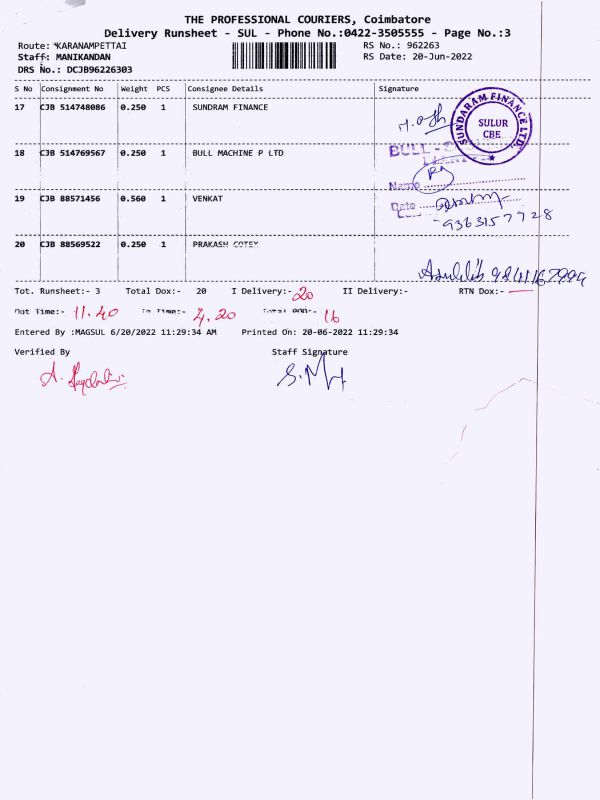 THE PROFESSIONAL COURIERS, Coimbatore
Delivery Runsheet - SUL - Phone No.:0422-3505555 - Page No.:3
Route: *KARANAMPETTAI RS No.: 962263
Staff: MANIKANDAN RS Date: 20-Jun-2022
DRS No.: DCJB96226303
S No Consignment No Weight PCS Consignee Details Signature
17 CJB 514748086 0.250 1 SUNDRAM FINANCE
SUNDARAM FINANCE LTD. SULUR CBE
18 CJB 514769567 0.250 1 BULL MACHINE P LTD
BULL -
Name
19 CJB 88571456 0.560 1 VENKAT
Date
9363157728
20 CJB 88569522 0.250 1 PRAKASH COTEY
Tot. Runsheet:- 3 Total Dox:- 20 I Delivery:- 20 II Delivery:- RTN Dox:-
Out Time:- 11.40 In Time:- 4.20 Total POD:- 16
Entered By :MAGSUL 6/20/2022 11:29:34 AM Printed On: 20-06-2022 11:29:34
Verified By Staff Signature